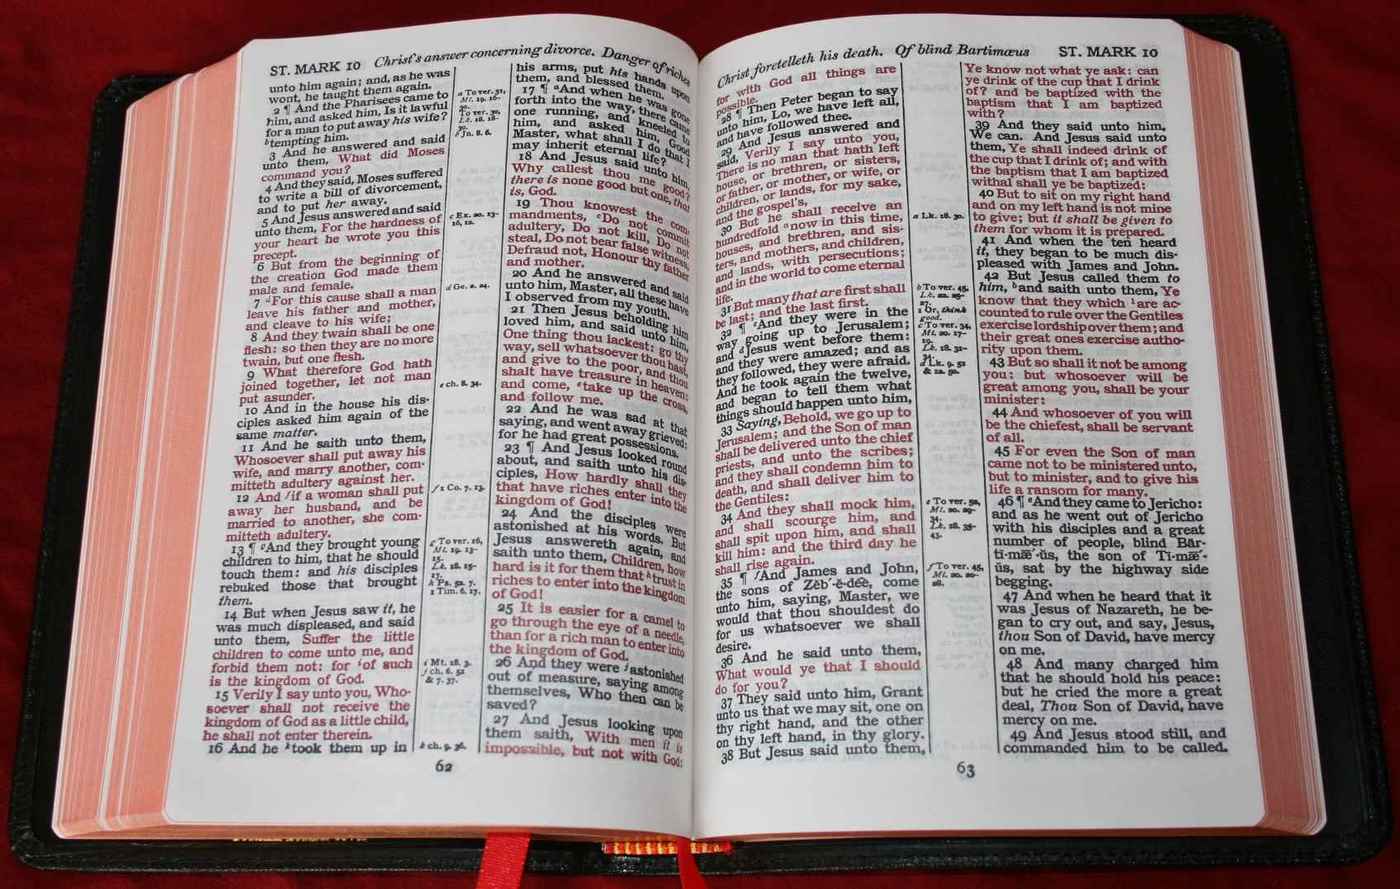 ST. MARK 10 Christ's answer concerning divorce. Danger of riches
unto him again; and, as he was
wont, he taught them again.
2 ¶ And the Pharisees came to
him, and asked him, Is it lawful
for a man to put away his wife?
b tempting him.
3 And he answered and said
unto them, What did Moses
command you?
4 And they said, Moses suffered
to write a bill of divorcement,
and to put her away.
5 And Jesus answered and said
unto them, For the hardness of
your heart he wrote you this
precept.
6 But from the beginning of
the creation God made them
male and female.
7 d For this cause shall a man
leave his father and mother,
and cleave to his wife;
8 And they twain shall be one
flesh: so then they are no more
twain, but one flesh.
9 What therefore God hath
joined together, let not man
put asunder.
10 And in the house his dis-
ciples asked him again of the
same matter.
11 And he saith unto them,
Whosoever shall put away his
wife, and marry another, com-
mitteth adultery against her.
12 And f if a woman shall put
away her husband, and be
married to another, she com-
mitteth adultery.
13 ¶ g And they brought young
children to him, that he should
touch them: and his disciples
rebuked those that brought
them.
14 But when Jesus saw it, he
was much displeased, and said
unto them, Suffer the little
children to come unto me, and
forbid them not: for i of such
is the kingdom of God.
15 Verily I say unto you, Who-
soever shall not receive the
kingdom of God as a little child,
he shall not enter therein.
16 And he k took them up in
a To ver. 31,
Mt. 19. 16-
30.
To ver. 30,
Lk. 18. 18-
30.
b Jn. 8. 6.
c Ex. 20. 13-
16, 12.
d Ge. 2. 24.
e ch. 8. 34.
f 1 Co. 7. 13.
g To ver. 16,
Mt. 19. 13-
15.
Lk. 18. 15-
17.
h Ps. 52. 7.
1 Tim. 6. 17.
i Mt. 18. 3.
j ch. 6. 52
& 7. 37.
k ch. 9. 36.
his arms, put his hands upon
them, and blessed them.
17 ¶ a And when he was gone
forth into the way, there came
one running, and kneeled to
him, and asked him, Good
Master, what shall I do that I
may inherit eternal life?
18 And Jesus said unto him,
Why callest thou me good?
there is none good but one, that
is, God.
19 Thou knowest the com-
mandments, c Do not commit
adultery, Do not kill, Do not
steal, Do not bear false witness,
Defraud not, Honour thy father
and mother.
20 And he answered and said
unto him, Master, all these have
I observed from my youth.
21 Then Jesus beholding him
loved him, and said unto him,
One thing thou lackest: go thy
way, sell whatsoever thou hast,
and give to the poor, and thou
shalt have treasure in heaven:
and come, e take up the cross,
and follow me.
22 And he was sad at that
saying, and went away grieved:
for he had great possessions.
23 ¶ And Jesus looked round
about, and saith unto his dis-
ciples, How hardly shall they
that have riches enter into the
kingdom of God!
24 And the disciples were
astonished at his words. But
Jesus answereth again, and
saith unto them, Children, how
hard is it for them that h trust in
riches to enter into the kingdom
of God!
25 It is easier for a camel to
go through the eye of a needle,
than for a rich man to enter into
the kingdom of God.
26 And they were j astonished
out of measure, saying among
themselves, Who then can be
saved?
27 And Jesus looking upon
them saith, With men it is
impossible, but not with God:
62
Christ foretelleth his death. Of blind Bartimæus ST. MARK 10
for with God all things are
possible.
28 ¶ Then Peter began to say
unto him, Lo, we have left all,
and have followed thee.
29 And Jesus answered and
said, Verily I say unto you,
There is no man that hath left
house, or brethren, or sisters,
or father, or mother, or wife, or
children, or lands, for my sake,
and the gospel's,
30 But he shall receive an
hundredfold a now in this time,
houses, and brethren, and sis-
ters, and mothers, and children,
and lands, with persecutions;
and in the world to come eternal
life.
31 But many that are first shall
be last; and the last first.
32 ¶ c And they were in the
way going up to Jerusalem;
and d Jesus went before them:
and they were amazed; and as
they followed, they were afraid.
And he took again the twelve,
and began to tell them what
things should happen unto him,
33 Saying, Behold, we go up to
Jerusalem; and the Son of man
shall be delivered unto the chief
priests, and unto the scribes;
and they shall condemn him to
death, and shall deliver him to
the Gentiles:
34 And they shall mock him,
and shall scourge him, and
shall spit upon him, and shall
kill him: and the third day he
shall rise again.
35 ¶ f And James and John,
the sons of Zĕb´-ĕ-dēe, come
unto him, saying, Master, we
would that thou shouldest do
for us whatsoever we shall
desire.
36 And he said unto them,
What would ye that I should
do for you?
37 They said unto him, Grant
unto us that we may sit, one on
thy right hand, and the other
on thy left hand, in thy glory.
38 But Jesus said unto them,
a Lk. 18. 30.
b To ver. 45,
Lk. 22. 25-
27.
1 Or, think
good.
c To ver. 34,
Mt. 20. 17-
19.
Lk. 18. 31-
34.
d Lk. 9. 51
& 12. 50.
e To ver. 52,
Mt. 20. 29-
34.
Lk. 18. 35-
43.
f To ver. 45,
Mt. 20. 20-
28.
Ye know not what ye ask: can
ye drink of the cup that I drink
of? and be baptized with the
baptism that I am baptized
with?
39 And they said unto him,
We can. And Jesus said unto
them, Ye shall indeed drink of
the cup that I drink of; and with
the baptism that I am baptized
withal shall ye be baptized:
40 But to sit on my right hand
and on my left hand is not mine
to give; but it shall be given to
them for whom it is prepared.
41 And when the ten heard
it, they began to be much dis-
pleased with James and John.
42 But Jesus called them to
him, b and saith unto them, Ye
know that they which 1 are ac-
counted to rule over the Gentiles
exercise lordship over them; and
their great ones exercise autho-
rity upon them.
43 But so shall it not be among
you: but whosoever will be
great among you, shall be your
minister:
44 And whosoever of you will
be the chiefest, shall be servant
of all.
45 For even the Son of man
came not to be ministered unto,
but to minister, and to give his
life a ransom for many.
46 ¶ e And they came to Jericho:
and as he went out of Jericho
with his disciples and a great
number of people, blind Bär-
ti-mæ´-ŭs, the son of Ti-mæ´-
ŭs, sat by the highway side
begging.
47 And when he heard that it
was Jesus of Nazareth, he be-
gan to cry out, and say, Jesus,
thou Son of David, have mercy
on me.
48 And many charged him
that he should hold his peace:
but he cried the more a great
deal, Thou Son of David, have
mercy on me.
49 And Jesus stood still, and
commanded him to be called.
63